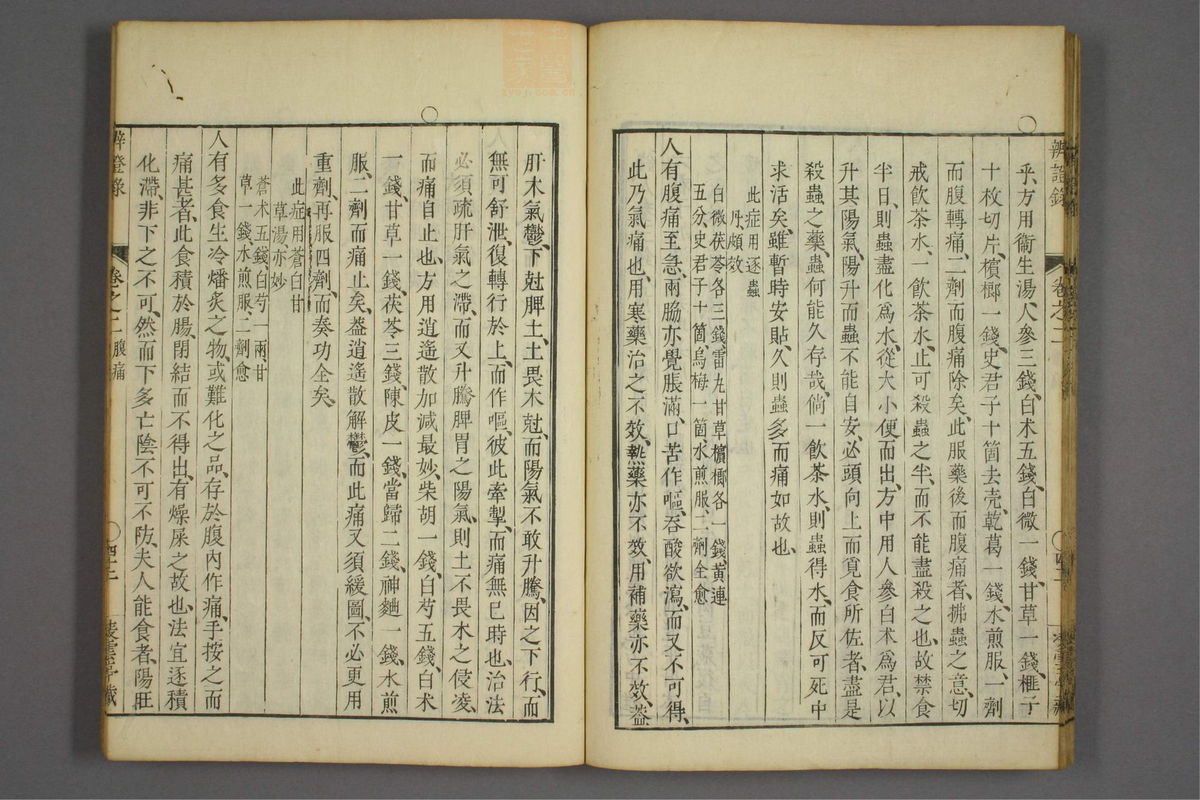 辨證錄
卷之二
乎、方用衞生湯、人參三錢、白术五錢、白微一錢、甘草一錢、榧子
十枚切片、檳榔一錢、史君子十箇去壳、乾葛一錢、水煎服、一劑
而腹轉痛、二劑而腹痛除矣、此服藥後而腹痛者、拂蟲之意、切
戒飲茶水、一飲茶水、止可殺蟲之半、而不能盡殺之也、故禁食
半日、則蟲盡化爲水、從大小便而出、方中用人參白术爲君、以
升其陽氣、陽升而蟲不能自安、必頭向上而覓食、所佐者、盡是
殺蟲之藥、蟲何能久存哉、倘一飲茶水、則蟲得水、而反可死中
求活矣、雖暫時安貼、久則蟲多而痛如故也、
此症用逐蟲
丹、頗效
白微茯苓各三錢、雷丸甘草檳榔各一錢、黃連
五分、史君子十箇、烏梅一箇、水煎服、二劑全愈
人有腹痛至急、兩脇亦覺脹滿、口苦作嘔、吞酸欲瀉、而又不可得、
此乃氣痛也、用寒藥治之不效、熱藥亦不效、用補藥亦不效、葢
肝木氣鬱、下尅脾土、土畏木尅、而陽氣不敢升騰、因之下行、而
無可舒泄、復轉行於上、而作嘔、彼此牽掣、而痛無已時也、治法
必須疏肝氣之滯、而又升騰脾胃之陽氣、則土不畏木之侵凌、
而痛自止也、方用逍遙散加減最妙、柴胡一錢、白芍五錢、白术
一錢、甘草一錢、茯苓三錢、陳皮一錢、當歸二錢、神麯一錢、水煎
服、二劑而痛止矣、葢逍遙散解鬱、而此痛又須緩圖、不必更用
重劑、再服四劑、而奏功全矣、
此症用蒼白甘
草湯亦妙
蒼术五錢、白芍一兩、甘
草一錢、水煎服、二劑愈
人有多食生冷燔炙之物、或難化之品、存於腹內作痛、手按之而
痛甚者、此食積於腸、閉結而不得出、有燥屎之故也、法宜逐積
化滯、非下之不可、然而下多亡陰、不可不防、夫人能食者、陽旺
辨證錄
卷之二 腹痛